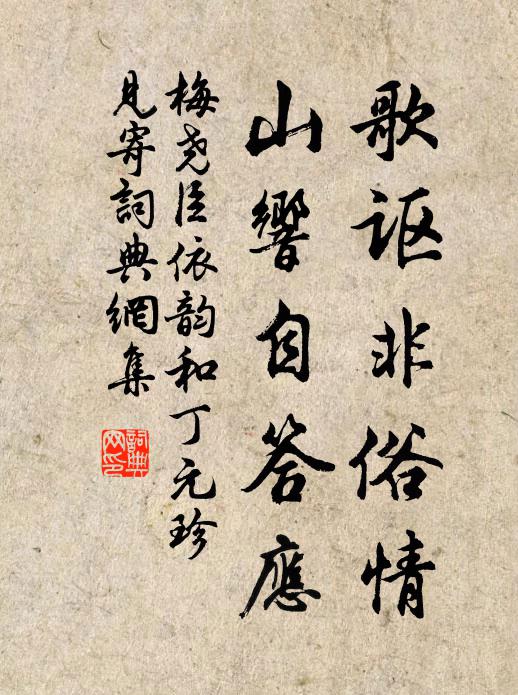 歌讴非俗情
山響自答應
梅尧臣依韵和丁元珍
見寄詞典網集
詞典网印